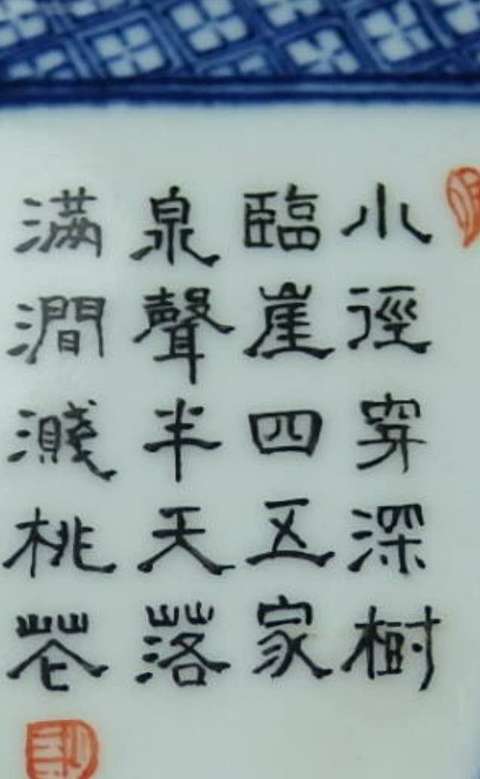 小徑穿深樹
臨崖四五家
泉聲半天落
滿澗濺桃花